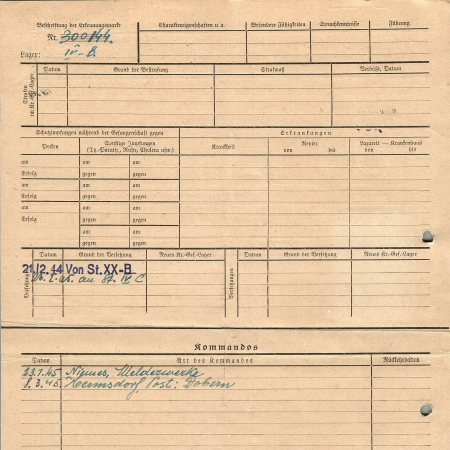 Beschriftung der Erkennungsmarke
Nr. 300144.
Lager: IV-B
Charaktereigenschaften u. a.
Besondere Fähigkeiten
Sprachkenntnisse
Führung
Strafen im Kr.-Gef.-Lager
Datum
Grund der Bestrafung
Strafmaß
Verbüßt, Datum
Schutzimpfungen während der Gefangenschaft gegen
Erkrankungen
Pocken
Sonstige Impfungen
(Ty.-Paraty., Ruhr, Cholera usw.)
Krankheit
Revier
von bis
Lazarett — Krankenhaus
von bis
am am am
Erfolg gegen gegen
am am am
Erfolg gegen gegen
am am am
Erfolg gegen gegen
am am
gegen gegen
Versetzungen
Datum
Grund der Versetzung
Neues Kr.-Gef.-Lager
Versetzungen
Datum
Grund der Versetzung
Neues Kr.-Gef.-Lager
21/2. 44 Von St. XX-B
an St. IV C
Kommandos
Datum
Art des Kommandos
Rückkehrdatum
23.1.45 Niemes, Welderwerke
8.3.45. Hermsdorf Post: Dobern